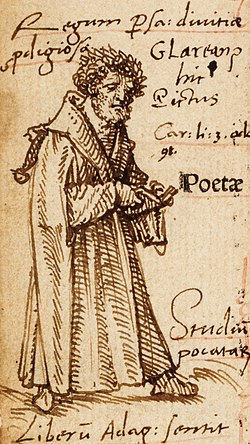 Regum Psa: divitiæ
pdigiosa
GLarean9
hic
Pictus
Car: li: 3. od:
Poetæ
Studiū
pocatas
Liberū Adag: sentit